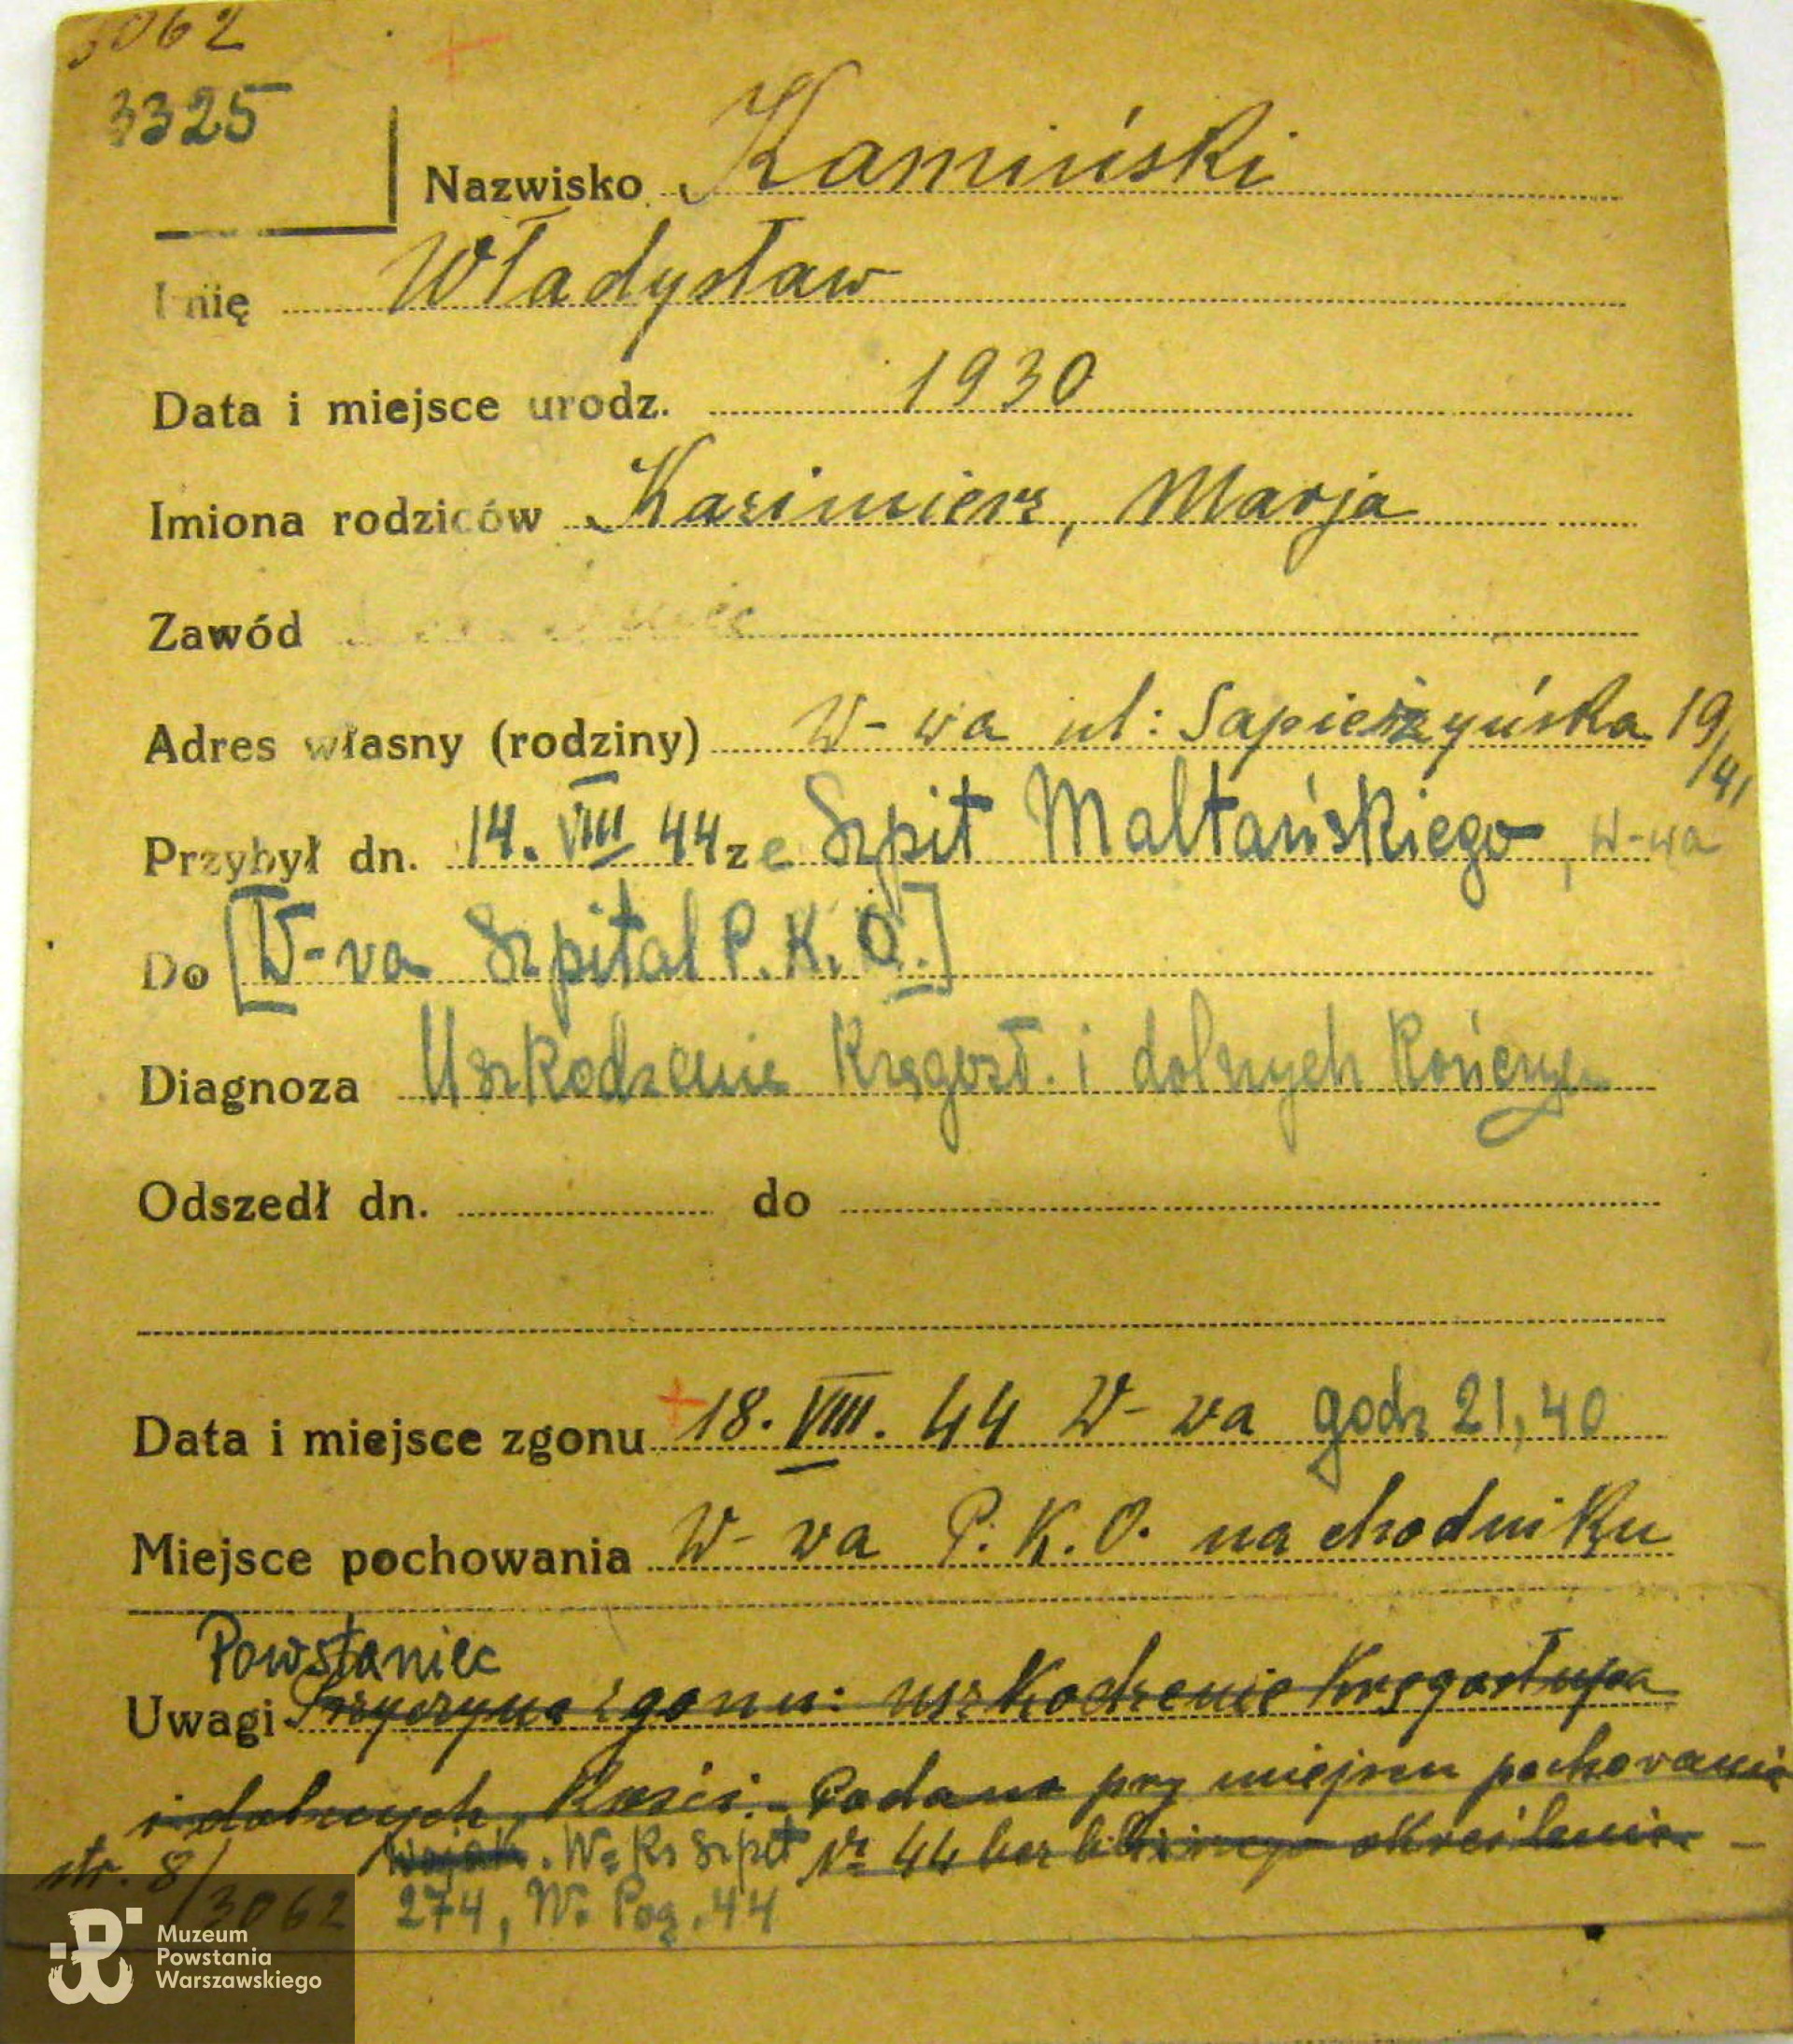 3062
3325
Nazwisko Kamiński
Imię Władysław
Data i miejsce urodz. 1930
Imiona rodziców Kazimierz, Marja
Zawód
Adres własny (rodziny) W-wa ul: Sapieżyńska 19/41
Przybył dn. 14. VIII 44 ze Szpit Maltańskiego, W-wa
Do [W-va Szpital P.K.O.]
Diagnoza Uszkodzenie Kręgosł. i dolnych Kończyn
Odszedł dn. do
Data i miejsce zgonu +18. VIII. 44 W-va godz 21,40
Miejsce pochowania W-va P.K.O. na chodniku
Powstaniec
Uwagi Przyczyna zgonu: uszkodzenie kręgosłupa
i dolnych Kości. Podano przy miejscu pochowania
Nr 44 bez bliższego określenia. –
str. 8/3062 Nr Ks Szpit
274, Nr Pog. 44
Muzeum
Powstania
Warszawskiego